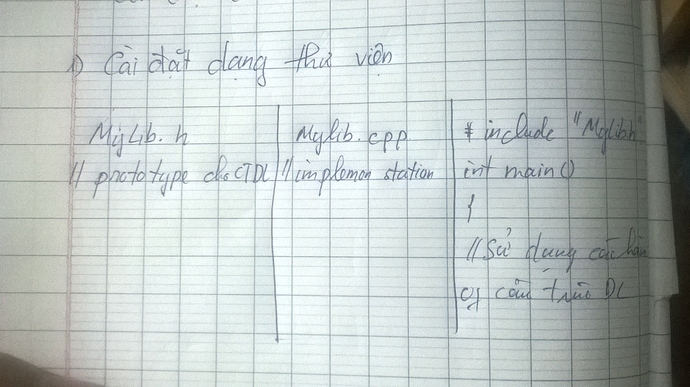 1) Cài đặt dạng thư viện
MyLib.h
// prototype cho CTDL
Mylib.cpp
// implemon station
# include "Mylib.h"
int main()
{
// Sử dụng các hàm
cấu trúc DL